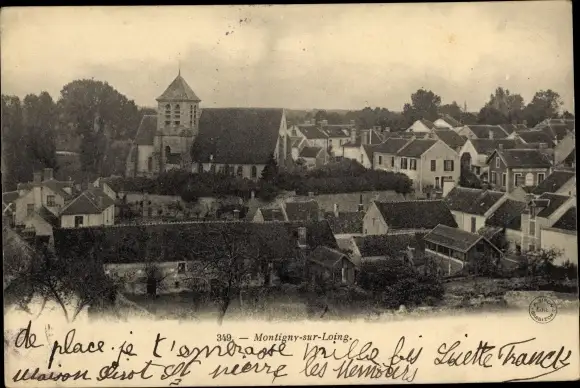 349 – Montigny-sur-Loing.
de place je t'embrasse mille fois Lisette Franck
Maison les Nemours